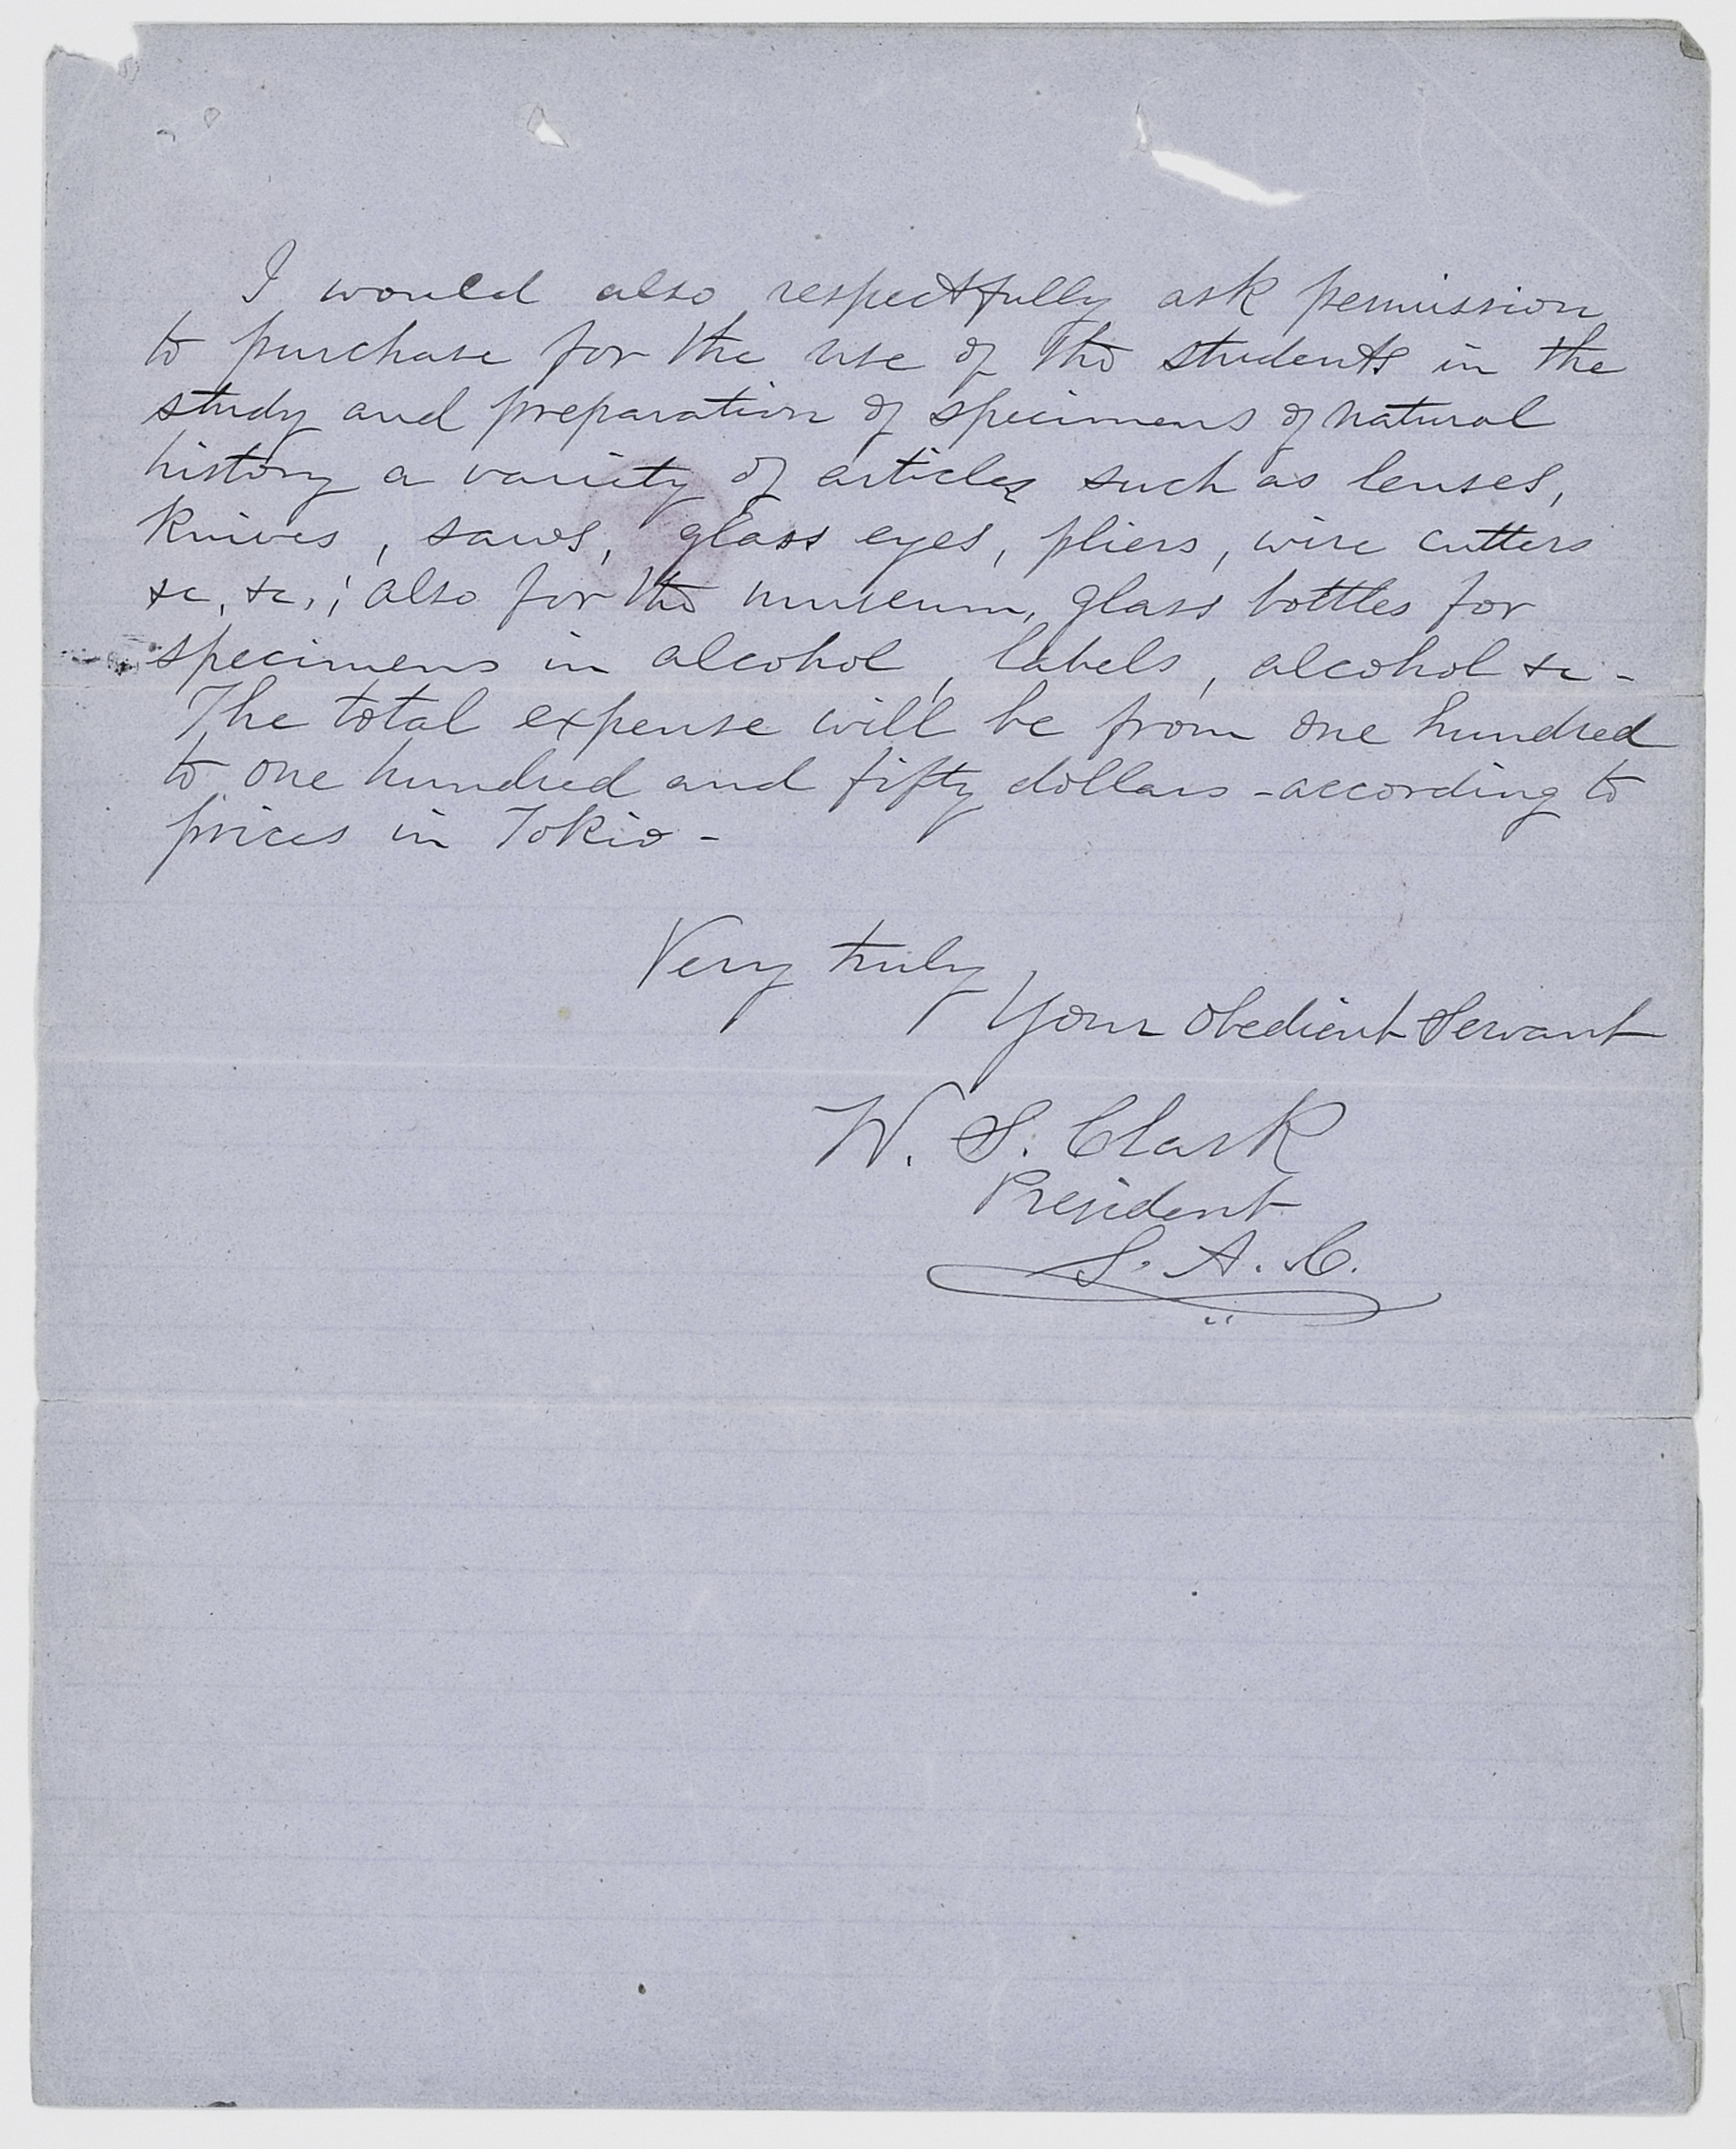 I would also respectfully ask permission
to purchase for the use of the students in the
study and preparation of specimens of natural
history a variety of articles such as lenses,
knives, saws, glass eyes, pliers, wire cutters
&c, &c,; also for the museum, glass bottles for
specimens in alcohol, labels, alcohol &c -
The total expense will be from one hundred
to one hundred and fifty dollars - according to
prices in Tokio -
Very truly,
Your obedient Servant
W. S. Clark
President
S. A. C.